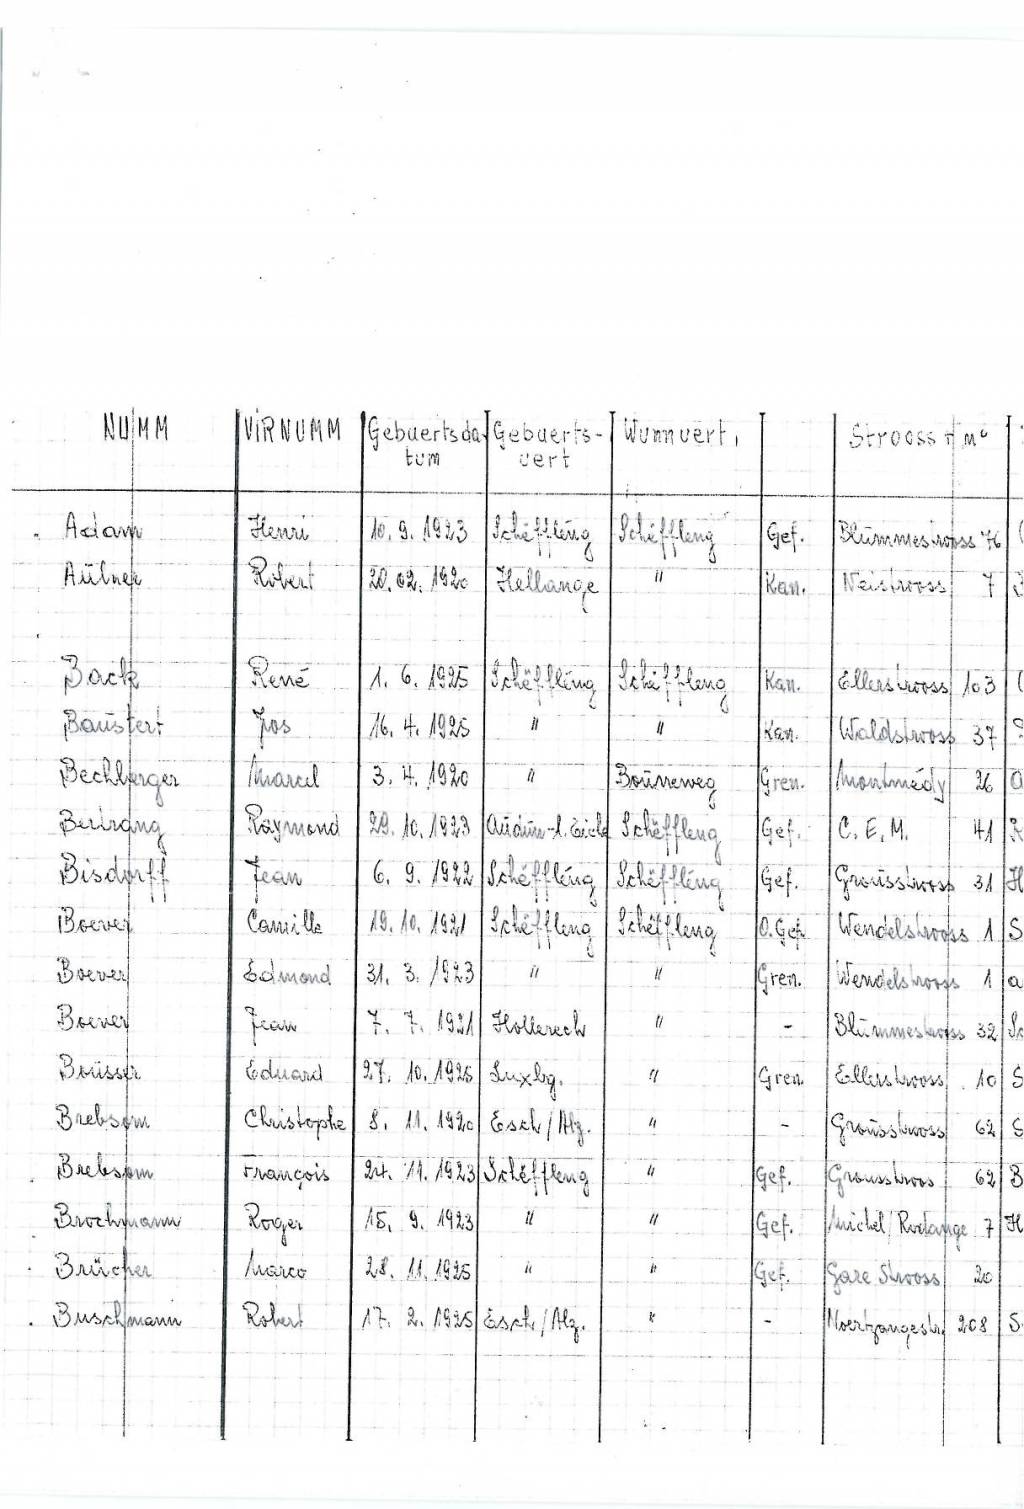 NUMM VIRNUMM Gebuertsda- Gebuerts- Wunnuert. Strooss + No
tum uert
Adam Henri 10. 9. 1923 Schëffléng Schëffleng Gef. Blummestrooss 76
Robert 20. 02. 1920 Hellange " Kan. Neistrooss 7
Back René 1. 6. 1925 Schëffléng Schëffleng Kan. Ellerstrooss 103
Baustert Jos 16. 4. 1925 " " Kan. Waldstrooss 37
Bechberger Marcel 3. 4. 1920 " Bouneweg Gren. Montmédy 26
Bertrang Raymond 29. 10. 1923 Audun-l. Schëffleng Gef. C. E. M. 41
Bisdorff Jean 6. 9. 1922 Schëffléng Schëffléng Gef. Groŭsstrooss 31
Boever Camille 19. 10. 1921 Schëffleng Schëffleng O.Gef. Wendelstrooss 1
Boever Edmond 31. 3. 1923 " " Gren. Wendelstrooss 1
Boever Jean 7. 7. 1921 Hollerech " - Blummestrooss 32
Bousser Eduard 27. 10. 1925 Luxbg. " Gren. Ellerstrooss 10
Brebsom Christophe 8. 11. 1920 Esch/Alz. " - Groŭsstrooss 62
Brebsom François 24. 11. 1923 Schëffleng " Gef. Grousstrooss 62
Brochmann Roger 15. 9. 1923 " " Gef. Michel Rodange 7
Brücher Marco 28. 11. 1925 " " Gef. Gare Strooss 20
Buschmann Robert 17. 2. 1925 Esch/Alz. " - Noertzangestr. 208